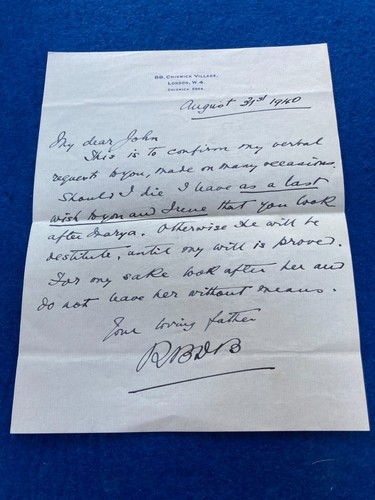 86, Chiswick Village,
London, W.4.
Chiswick
August 31st 1940
My dear John
This is to confirm my verbal
requests to you, made on many occasions.
Should I die I leave as a last
wish to you and Irene that you look
after Marya. Otherwise she will be
destitute, until my will is proved.
For my sake look after her and
do not leave her without means.
Your loving father
RBDB